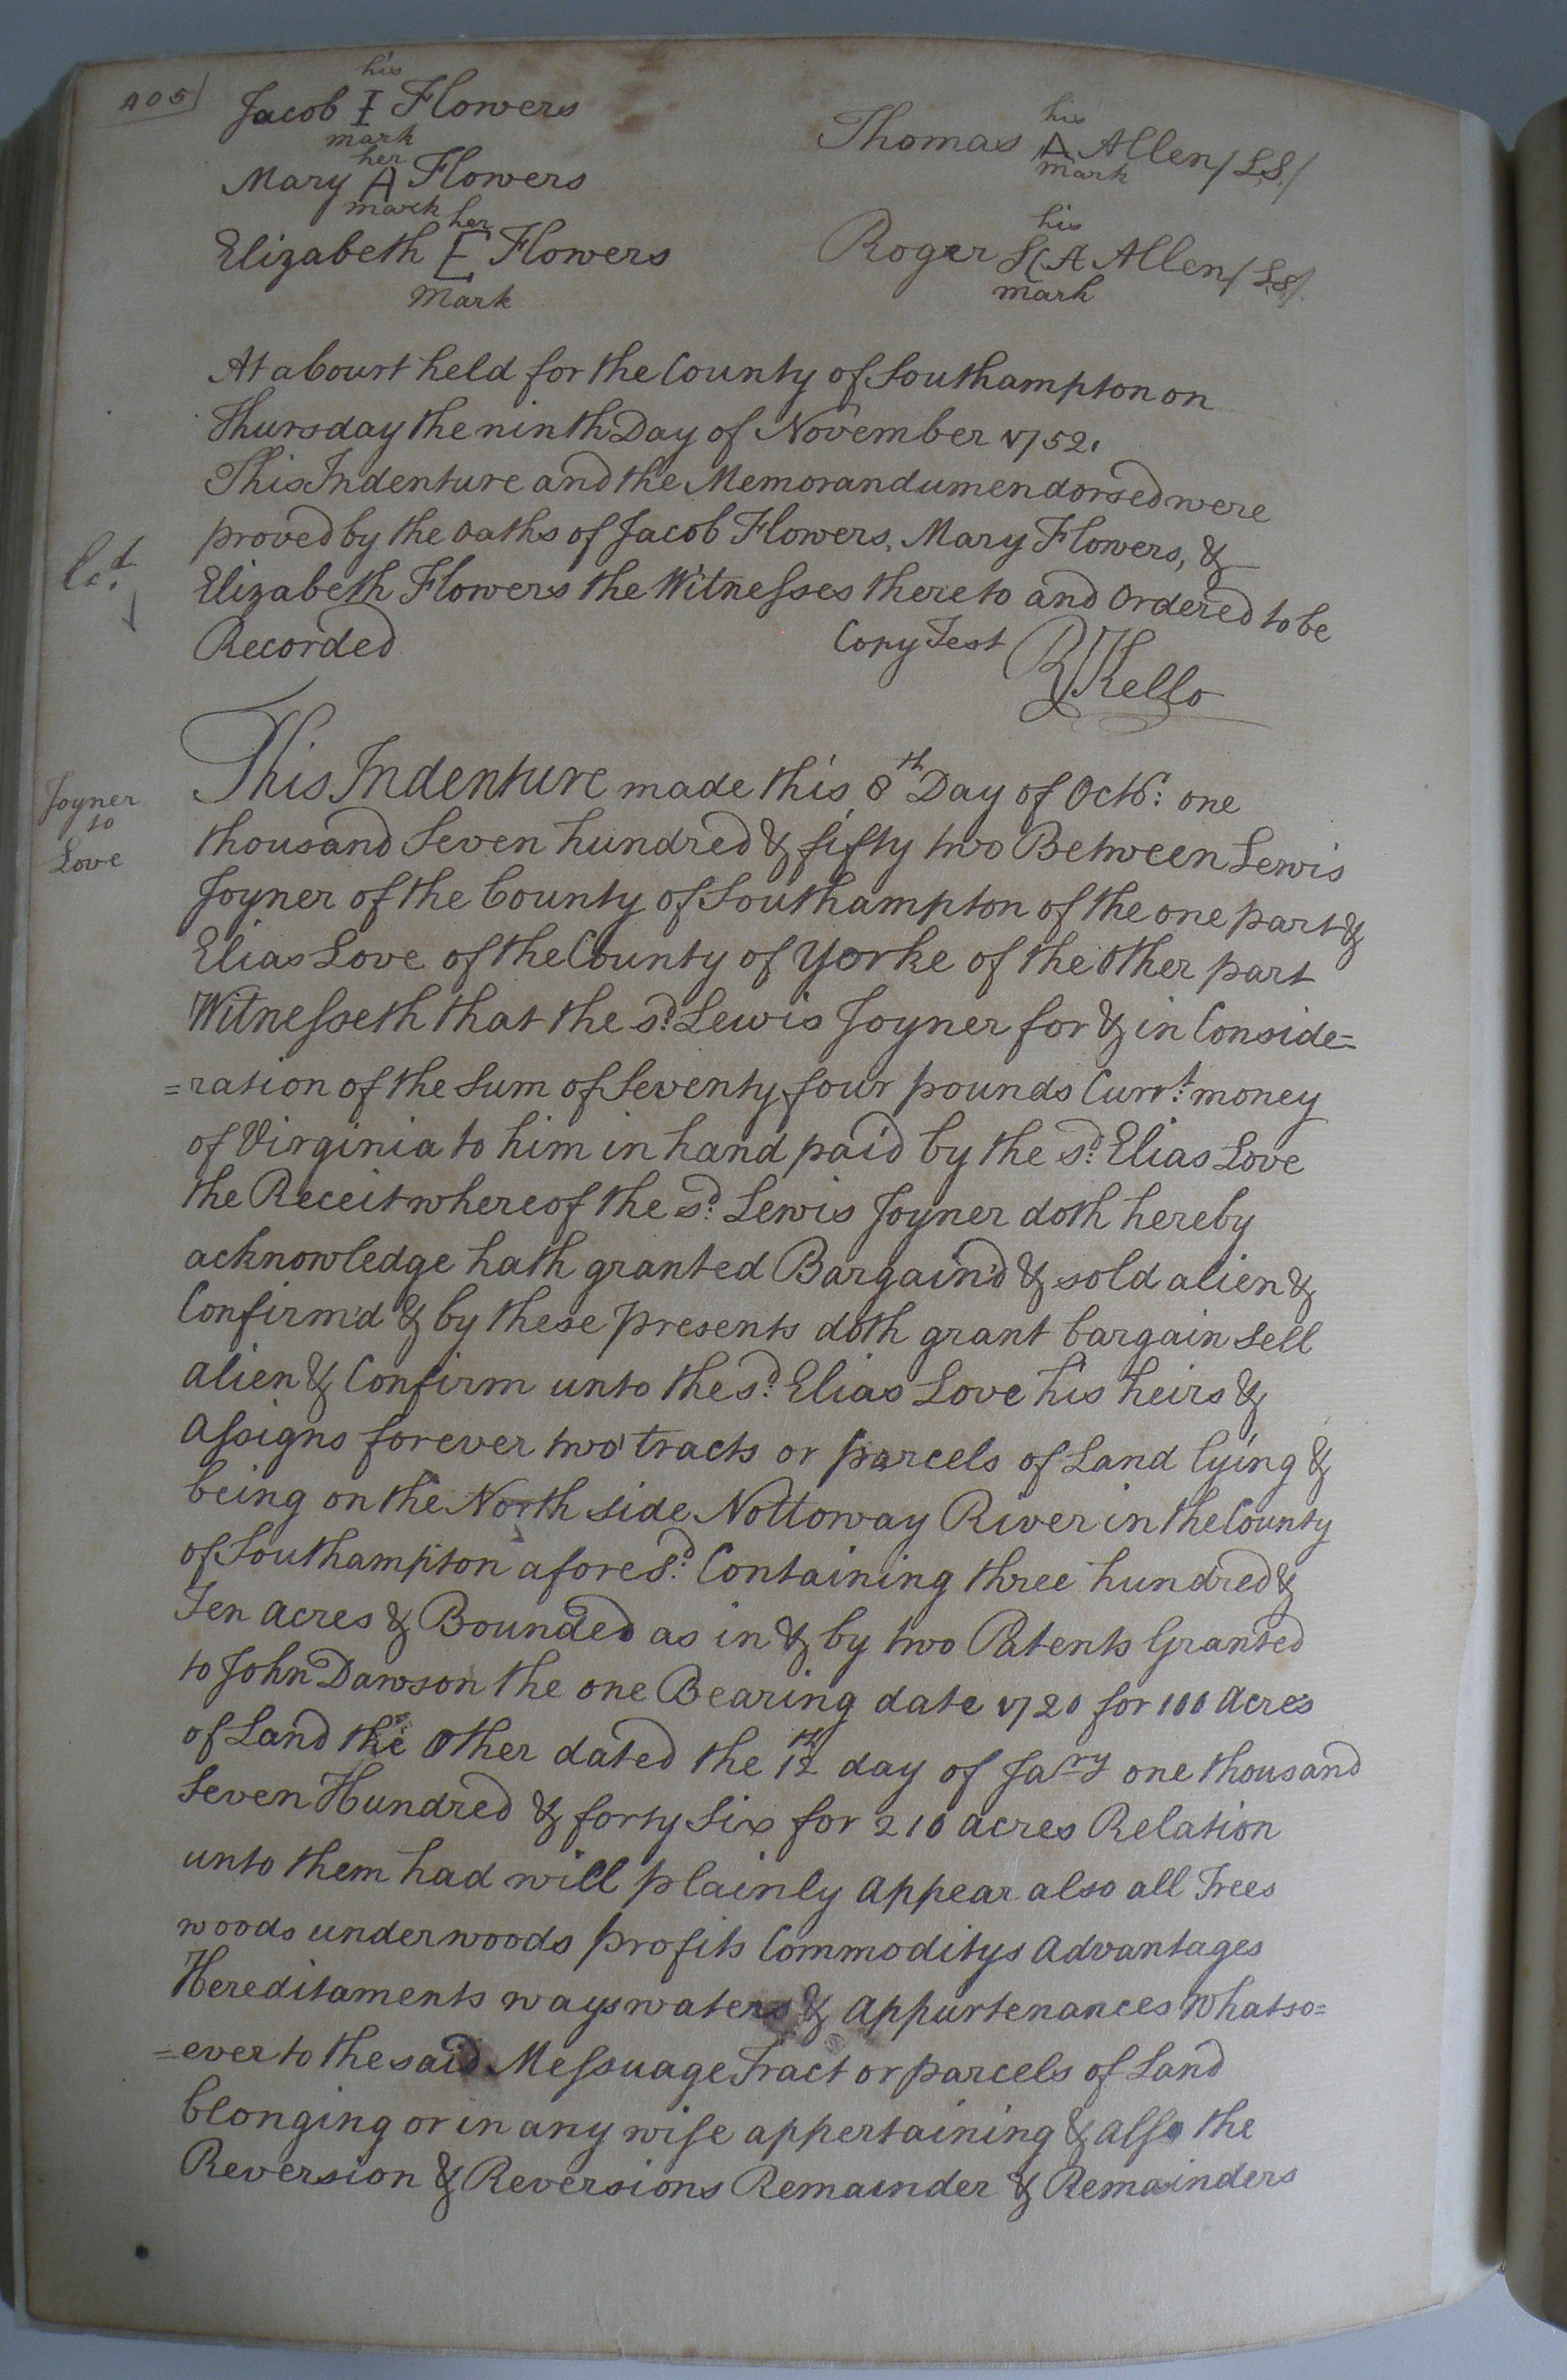 405
his
Jacob I Flowers
mark
her
Mary A Flowers
mark
her
Elizabeth E Flowers
Mark
his
Thomas A Allen /L.S./
mark
his
Roger Allen /L.S./
mark
At a Court held for the County of Southampton on
Thursday the ninth Day of November 1752.
This Indenture and the Memorandum endorsed were
proved by the Oaths of Jacob Flowers, Mary Flowers, &
Elizabeth Flowers the Witneſses thereto and Ordered to be
Recorded
Copy Test R Kello
Joyner
to
Love
This Indenture made this 8th Day of Octbr: one
thousand Seven hundred & fifty two Between Lewis
Joyner of the County of Southampton of the one part &
Elias Love of the County of Yorke of the Other part
Witneſseth that the sd. Lewis Joyner for & in Conside=
=ration of the Sum of Seventy four pounds Currt: money
of Virginia to him in hand paid by the sd: Elias Love
the Receit whereof the sd: Lewis Joyner doth hereby
acknowledge hath granted Bargain'd & sold alien &
Confirm'd & by these presents doth grant bargain Sell
alien & Confirm unto the sd: Elias Love his heirs &
Aſsigns forever two tracts or parcels of Land lying &
being on the North side Nottoway River in the County
of Southampton aforesd: Containing three hundred &
Ten acres & Bounded as in & by two Patents Granted
to John Dawson the one Bearing date 1720 for 100 Acres
of Land the Other dated the 12th day of Jary one thousand
Seven Hundred & forty Six for 210 acres Relation
unto them had will plainly Appear also all Trees
woods underwoods profits Commoditys Advantages
Hereditaments ways waters & Appurtenances Whatso=
=ever to the said Meſsuage Tract or parcels of Land
blonging or in any wiſe appertaining & alſo the
Reversion & Reversions Remainder & Remainders